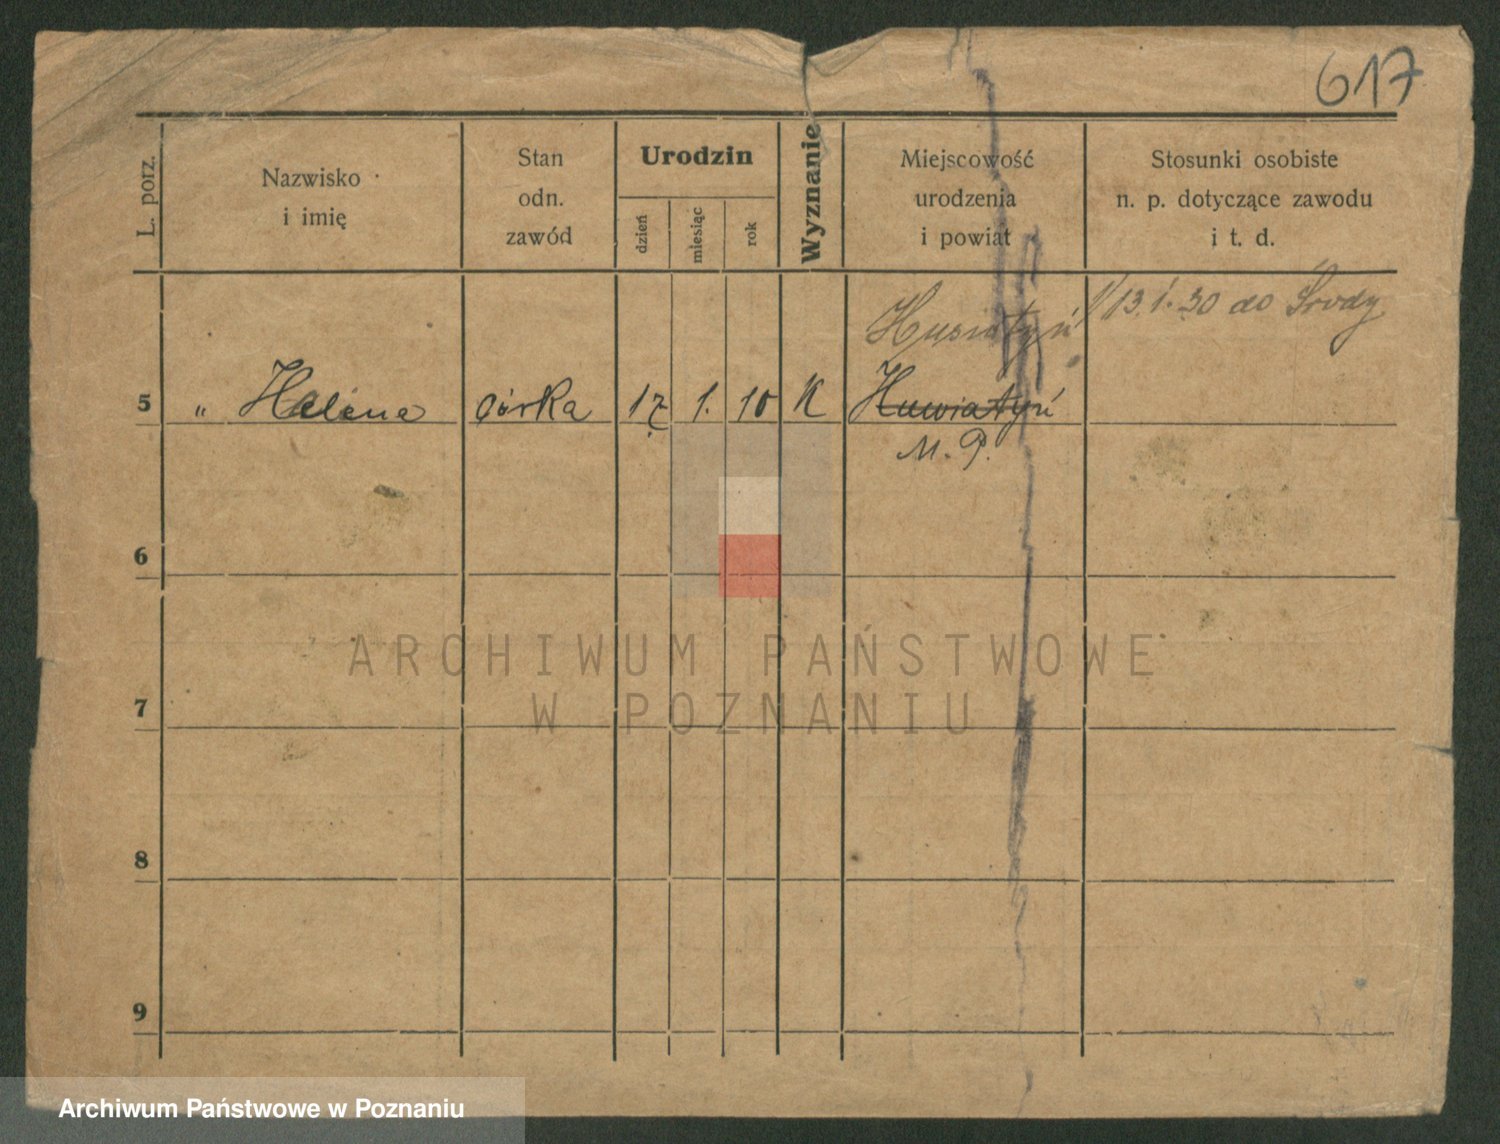 617
L. porz.
Nazwisko
i imię
Stan
odn.
zawód
Urodzin
dzień
miesiąc
rok
Wyznanie
Miejscowość
urodzenia
i powiat
Stosunki osobiste
n. p. dotyczące zawodu
i t. d.
Husiatyń
13.1.30 do Środy
5 " Helena córka 17 1. 10 K Huwiatyń
M. P.
6
7
8
9
ARCHIWUM PAŃSTWOWE
W POZNANIU
Archiwum Państwowe w Poznaniu